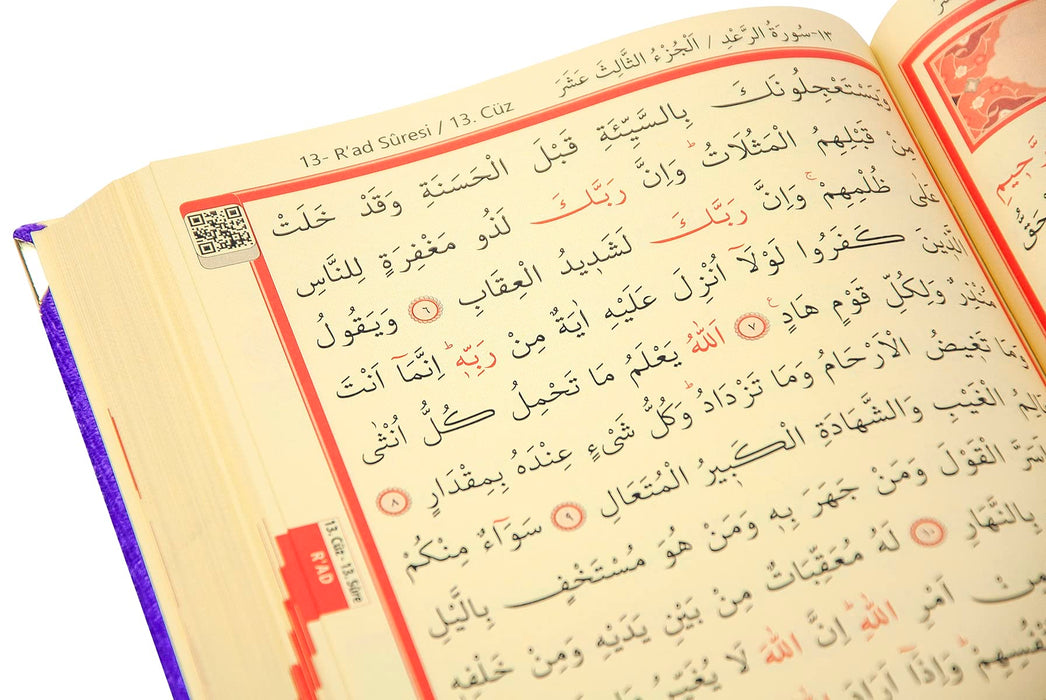 ١٣-سُورَةُ الرَّعْدِ / اَلْجُزْءُ الثَّالِثَ عَشَرَ
13- R'ad Sûresi / 13. Cüz
وَيَسْتَعْجِلُونَكَ بِالسَّيِّئَةِ قَبْلَ الْحَسَنَةِ وَقَدْ خَلَتْ
مِنْ قَبْلِهِمُ الْمَثُلَاتُۜ وَاِنَّ رَبَّكَ لَذُو مَغْفِرَةٍ لِلنَّاسِ
عَلٰى ظُلْمِهِمْۚ وَاِنَّ رَبَّكَ لَشَدٖيدُ الْعِقَابِ ﴿٦﴾ وَيَقُولُ
الَّذٖينَ كَفَرُوا لَوْلَٓا اُنْزِلَ عَلَيْهِ اٰيَةٌ مِنْ رَبِّهٖۜ اِنَّمَٓا اَنْتَ
مُنْذِرٌ وَلِكُلِّ قَوْمٍ هَادٍۚ ﴿٧﴾ اَللّٰهُ يَعْلَمُ مَا تَحْمِلُ كُلُّ اُنْثٰى
وَمَا تَغٖيضُ الْاَرْحَامُ وَمَا تَزْدَادُۜ وَكُلُّ شَیْءٍ عِنْدَهُ بِمِقْدَارٍ ﴿٨﴾
عَالِمُ الْغَيْبِ وَالشَّهَادَةِ الْكَبٖيرُ الْمُتَعَالِ ﴿٩﴾ سَوَٓاءٌ مِنْكُمْ
اَسَرَّ الْقَوْلَ وَمَنْ جَهَرَ بِهٖ وَمَنْ هُوَ مُسْتَخْفٍ بِالَّيْلِ
بِالنَّهَارِ ﴿١٠﴾ لَهُ مُعَقِّبَاتٌ مِنْ بَيْنِ يَدَيْهِ وَمِنْ خَلْفِهٖ
مِنْ اَمْرِ اللّٰهِۜ اِنَّ اللّٰهَ لَا يُغَيِّرُ مَا
وَاِذَٓا اَرَادَ اللّٰهُ
13. Cüz - 13. Sûre
R'AD